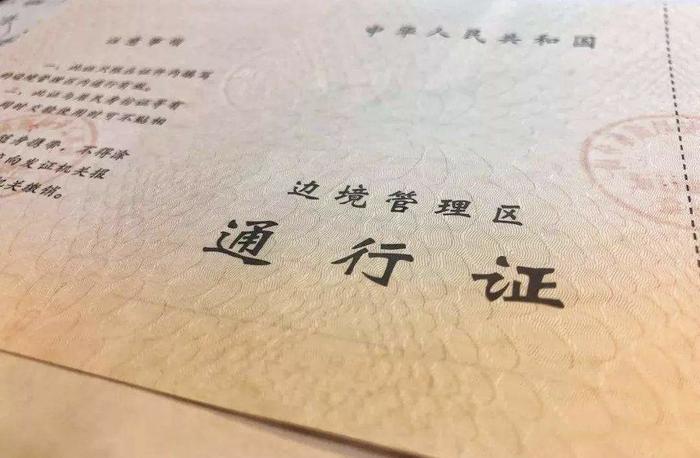 注意事项
一、此证只限在证件内填写
的边境管理区内通行有效。
二、此证与居民身份证等有
同时交验使用时可不贴相
证身携带，不得涂
向发证机关报
机关缴销。
中华人民共和国
边境管理区
通行证